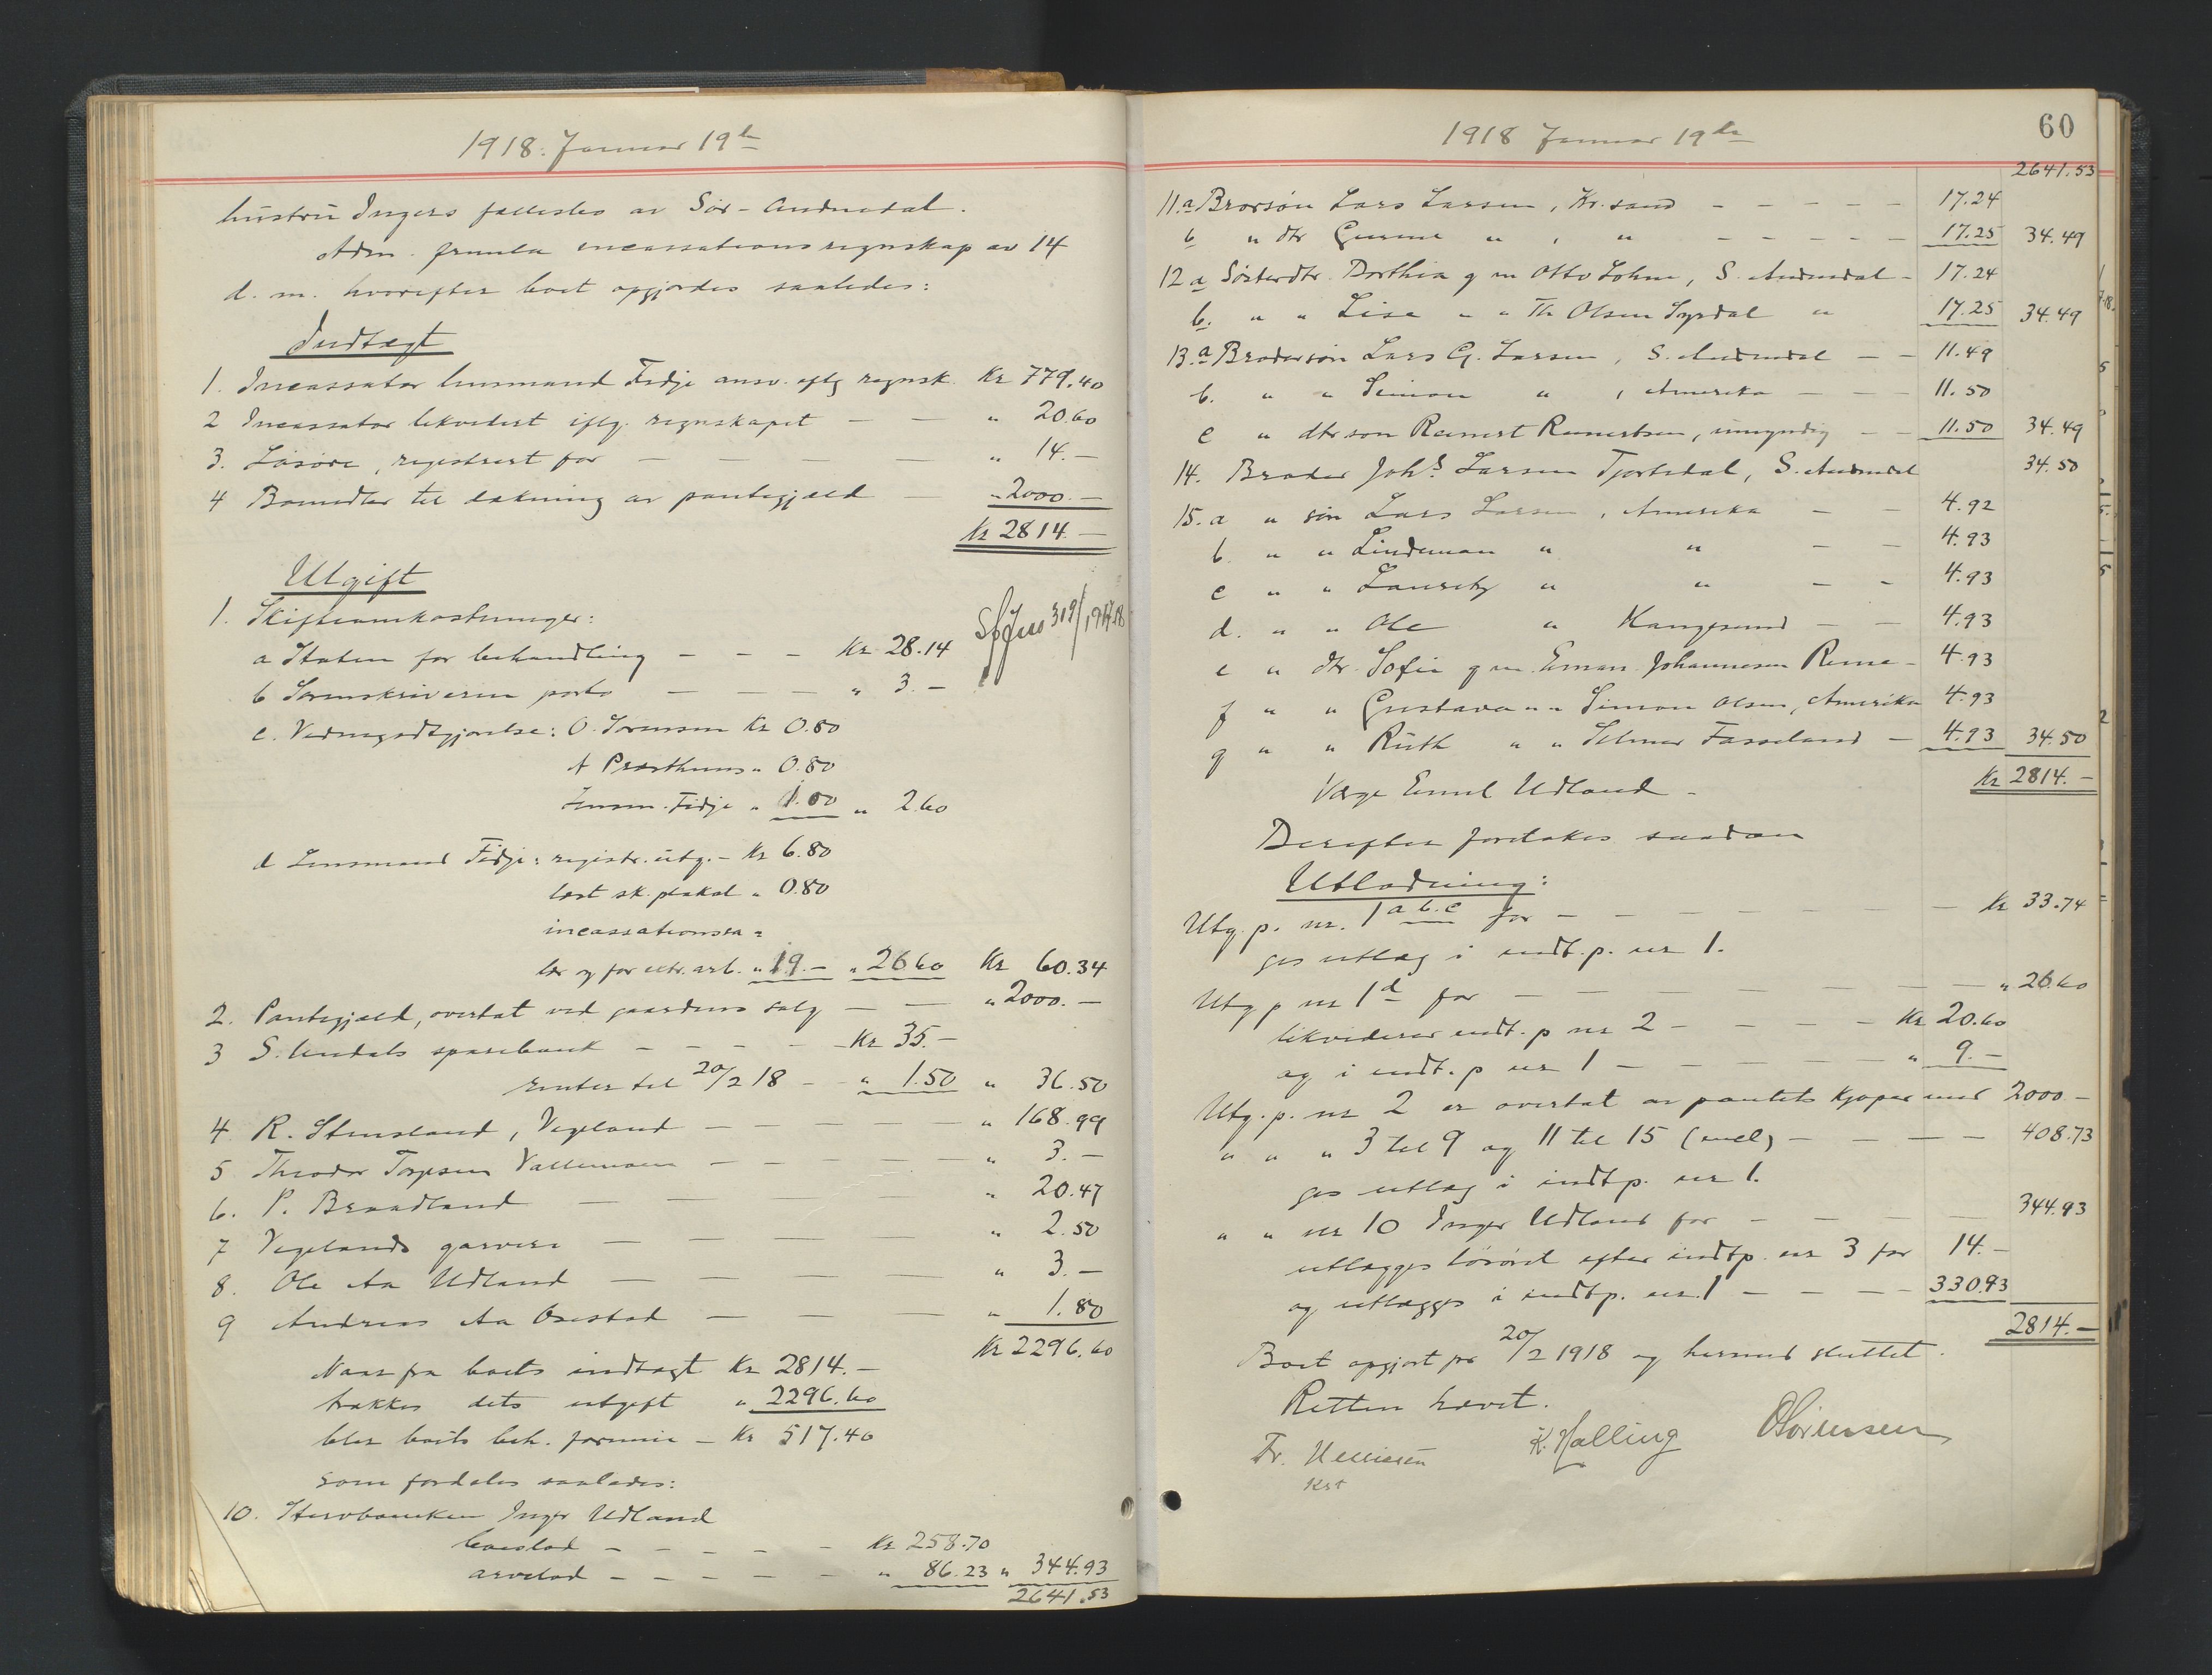 1918. Januar 19de
hustru Ingers fællesbo av Sør-Audnedal.
Adm. fremla incassationsregnskap av 14
d. m. hvorefter boet opgjordes saaledes:
Indtægt
1. Incassator lensmand Fidje ansv. eflg regnsk. Kr 779.40
2 Incassator likvidert iflg. regnskapet — — " 20.60
3. Løsøre, registrert for — — — — " 14.—
4 Bomidler til dækning av pantegjæld — " 2000.—
Kr 2814.—
Utgift
1. Skifteomkostninger:
a Staten for behandling — — — Kr 28.14
b Sorenskriveren porto — — — " 3.—
c. Vidnegodtgjørelse: O. Sørensen Kr 0.80
A Præsthuus " 0.80
Lensm. Fidje " 1.00 " 2.60
d Lensmand Fidje: registr. utg. — Kr 6.80
læst sk. plakat " 0.80
incassationssa=
lær og for extr. arb. " 19.— " 26.60 Kr 60.34
2. Pantegjæld, overtat ved gaardens salg — — " 2000.—
3 S. Undals sparebank — — — — Kr 35.—
renter til 20/2 18 — " 1.50 " 36.50
4 R. Stensland, Vigeland — — — — — " 168.99
5 Theodor Torjesen Vallemoen — — — — " 3.—
6. P. Braadland — — — — " 20.47
7 Vigelands garveri — — — — " 2.50
8. Ole Aa Udland — — — — " 3.—
9 Andreas Aa Osestad — — — " 1.80
Kr 2296.60
Naar fra boets indtægt Kr 2814.—
trækkes dets utgift " 2296.60
blir boets beh. formue — Kr 517.40
som fordeles saaledes:
10. Stervboenken Inger Udland
boeslod — — — — — Kr 258.70
arvelod — — — — — " 86.23 " 344.93
2641.53
1918 Januar 19de
60
2641.53
11.a Brorsøn Lars Larsen, Kr.sand — — — — — 17.24
b " dtr Gurine " , " — — — — — 17.25 34.49
12 a Søsterdtr. Dorthia g m Otto Lohne, S. Audnedal — 17.24
b. " " Lise " " Th Olsen Syrdal " 17.25 34.49
13.a Brodersøn Lars G. Larsen, S. Audnedal — — 11.49
b. " " Simon " , Amerika — — — 11.50
c " dtrson Reinert Reinertsen, umyndig — — 11.50 34.49
14. Broder Johs. Larsen Tjortedal, S. Audnedal 34.50
15.a " søn Lars Larsen, Amerika — — 4.92
b " " Lindeman " " — — 4.93
c " " Lauritz " " — — 4.93
d. " " Ole " Haugesund — — 4.93
e " dtr. Sofie g m. Eman. Johannesen Reme — 4.93
f " " Gustava " " Simon Olsen, Amerika 4.93
g " " Ruth " " Selmer Fasseland — 4.93 34.50
Værge Emil Udland — Kr 2814.—
Derefter foretokes saadan
Utlodning:
Utg. p. nr. 1 a b. c for — — — — — — Kr 33.74
ges utlæg i indt. p. nr 1.
Utg p nr 1 d for — — — — — — — " 26.60
likviderer indt. p nr 2 — — — — Kr 20.60
og i indt. p nr 1 — — — — — " 9.—
Utg. p. nr 2 er overtat av pantets kjøper med 2000.—
" " " 3 til 9 og 11 til 15 (incl) — — — — 408.73
ges utlæg i indt p. nr 1.
" " nr 10 Inger Udland for — — — — 344.93
utlægges løsøret efter indtp. nr 3 for 14.—
og utlægges i indtp. nr. 1 — — — — 330.93
2814.—
Boet opgjort pr 20/2 1918 og hermed sluttet.
Retten hævet.
K. Halling OSørensen
Kst